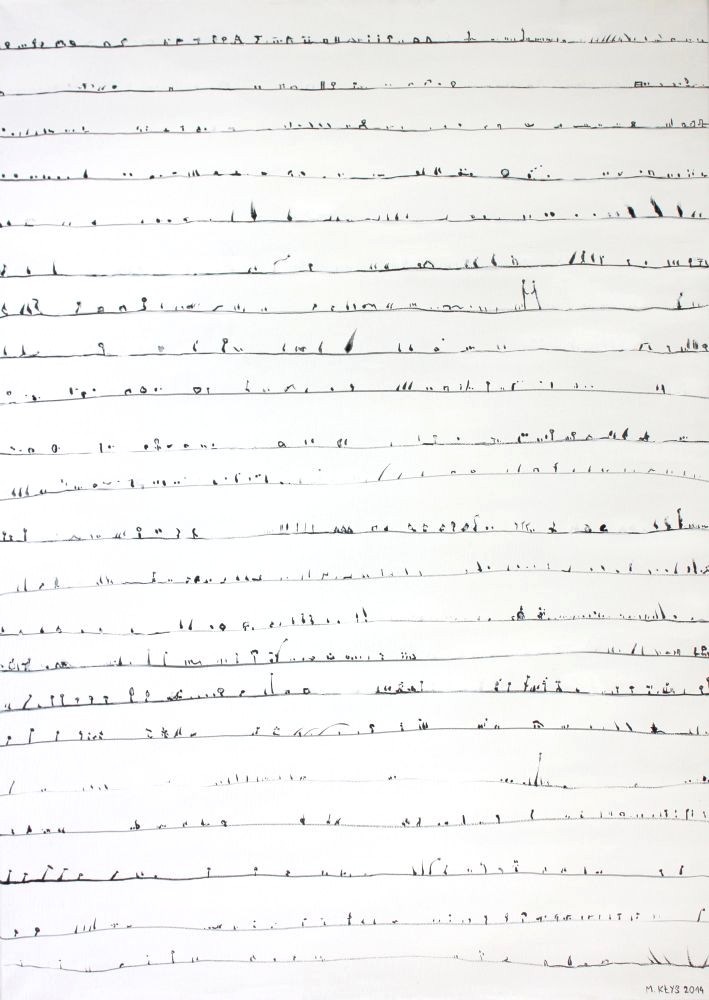 M. KŁYŚ 2014